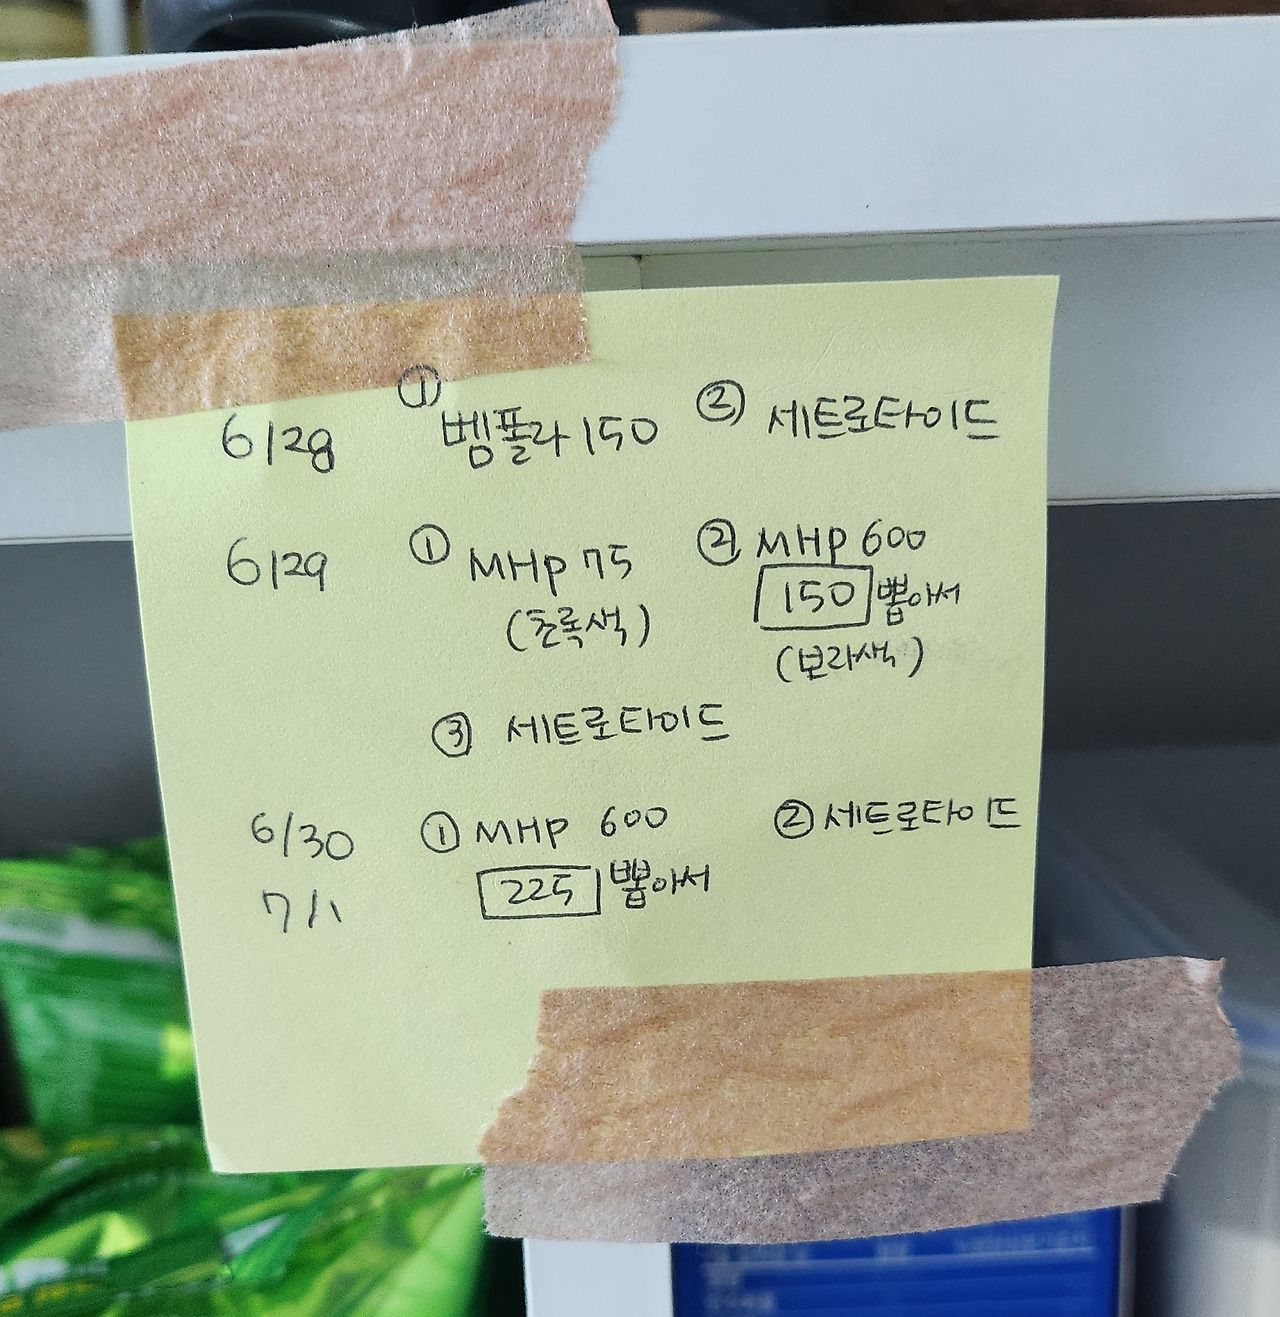 6/28 ① 벰폴라 150 ② 세트로타이드
6/29 ① MHP 75 ② MHP 600
150 뽑아서
(초록색) (보라색)
③ 세트로타이드
6/30 ① MHP 600 ② 세트로타이드
7/1 225 뽑아서